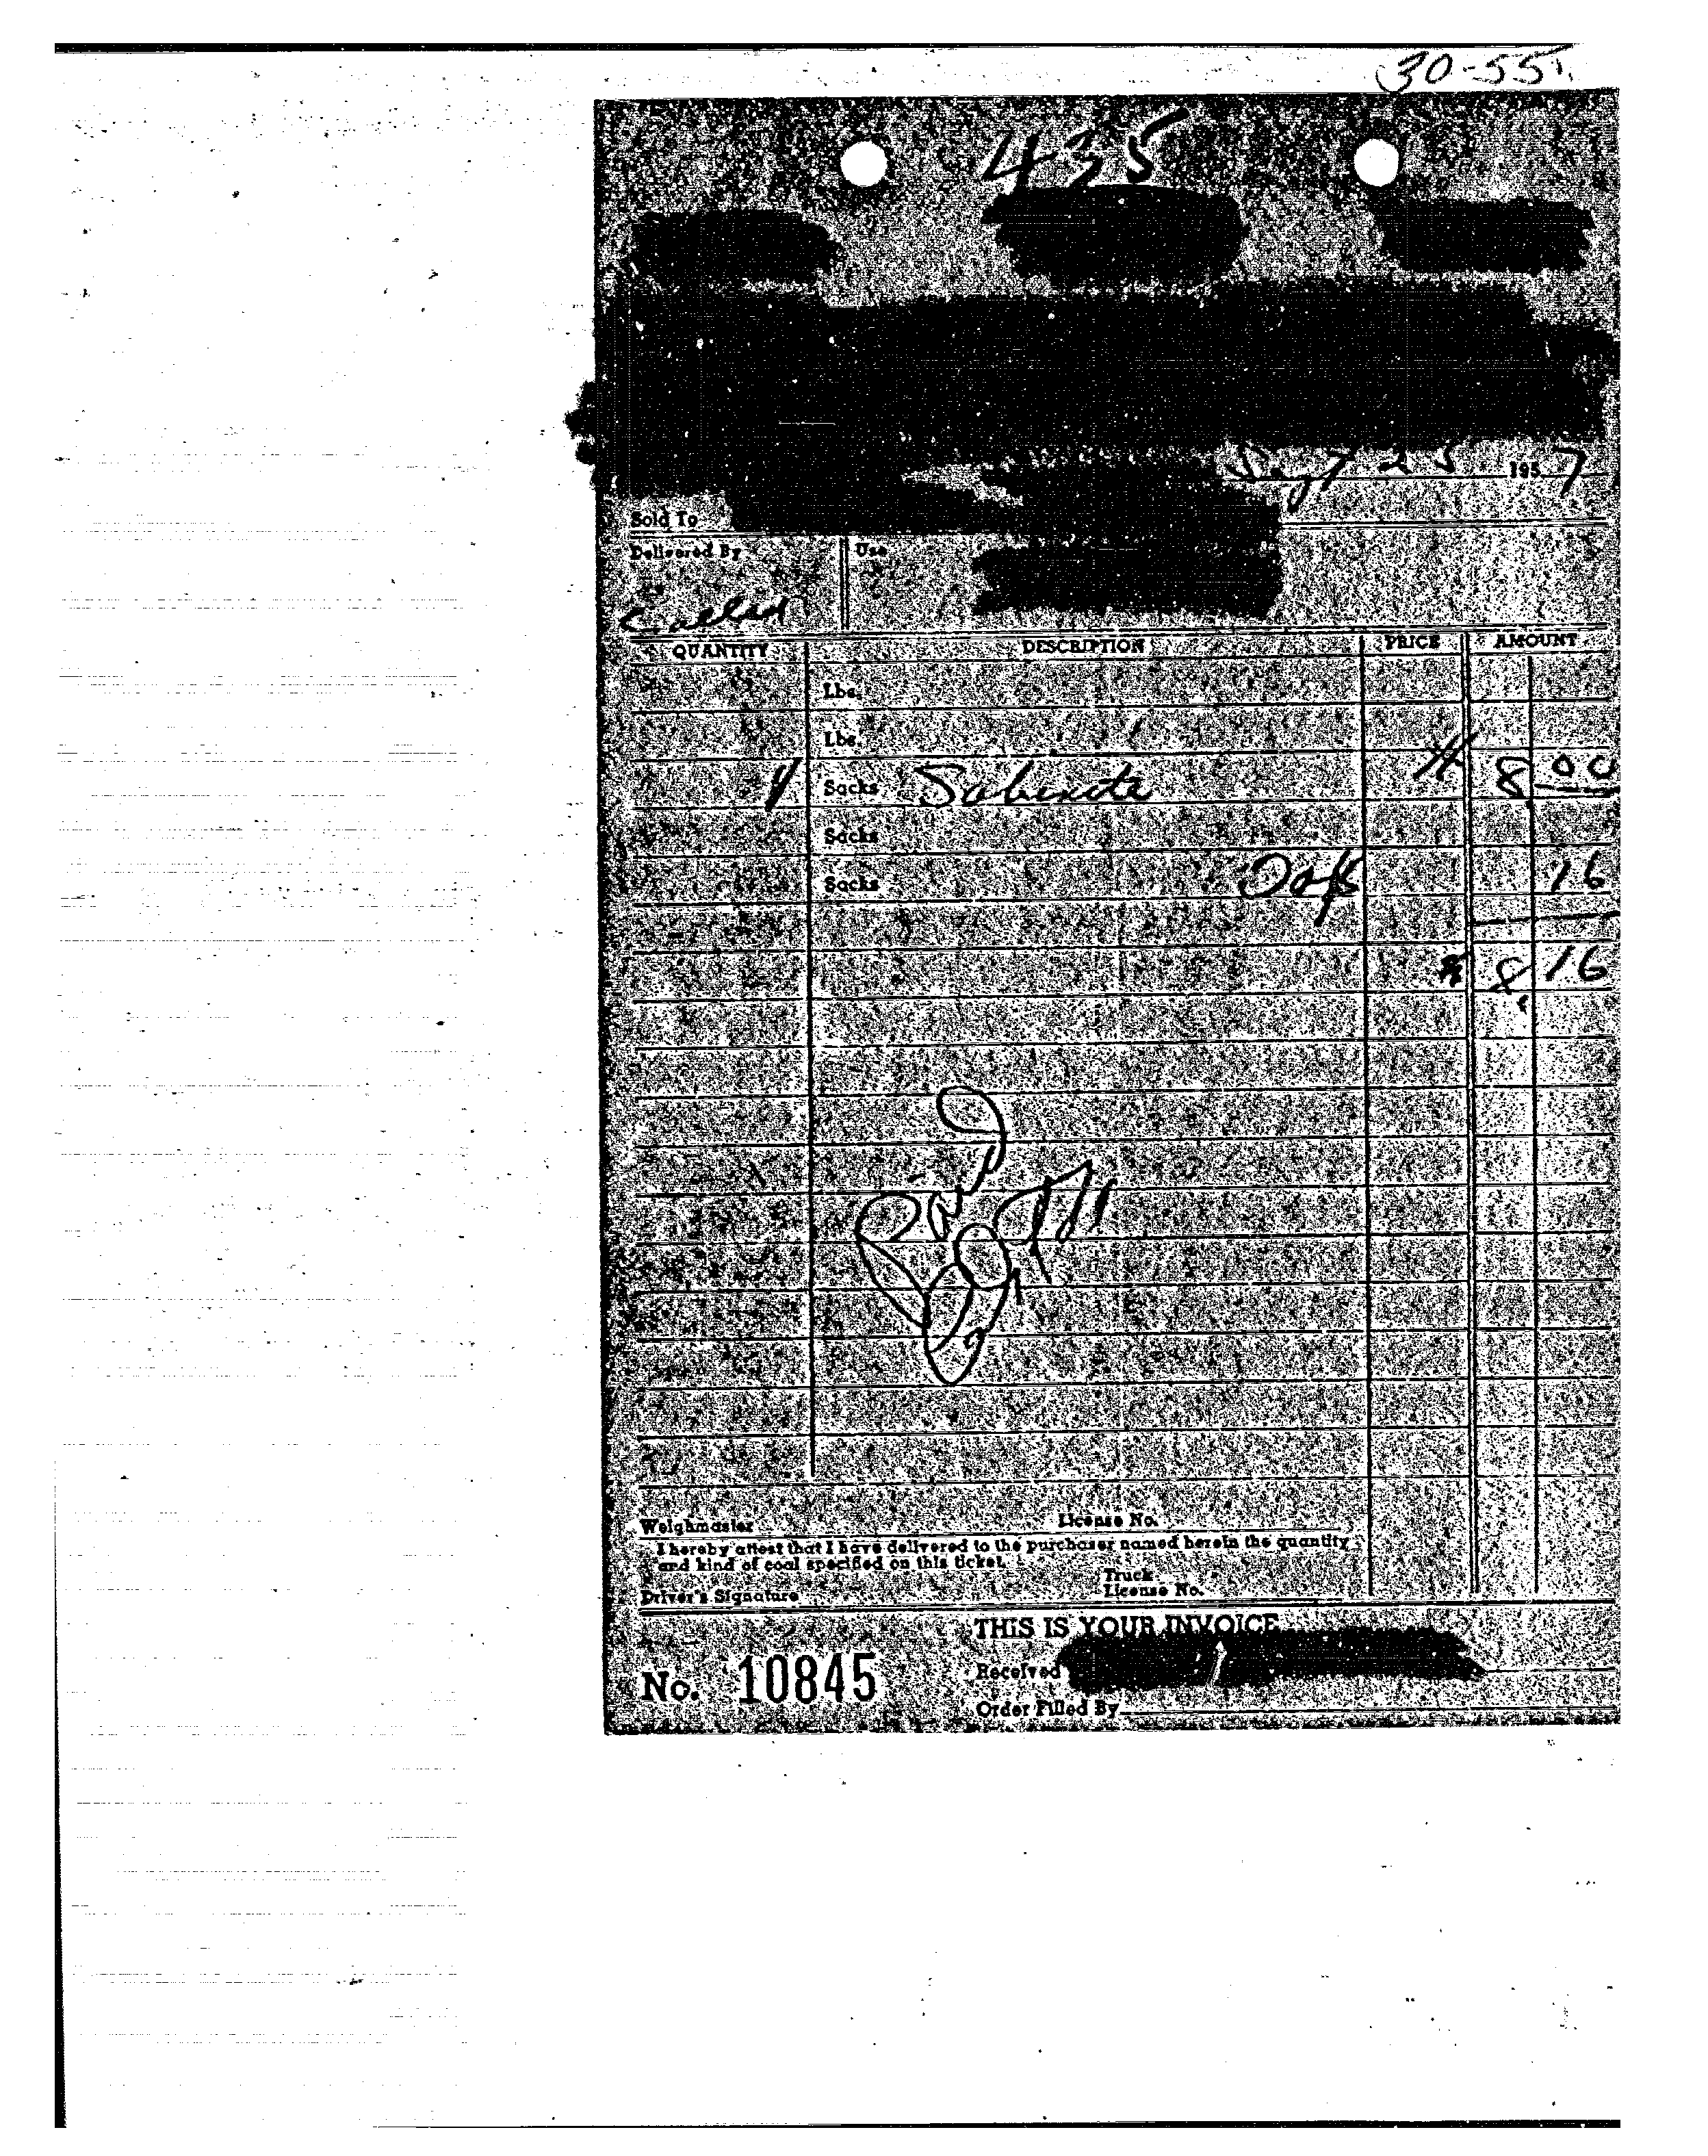 30-55
435
Sept 25 1957
Sold To
Delivered By Use
Called
QUANTITY DESCRIPTION PRICE AMOUNT
Lbs.
Lbs.
4 Sacks 8 00
Sacks
Sacks 16
8 16
Paid
Weighmaster License No.
I hereby attest that I have delivered to the purchaser named herein the quantity
and kind of coal specified on this ticket.
Truck
Driver's Signature License No.
THIS IS YOUR INVOICE
Received
No. 10845
Order Filled By